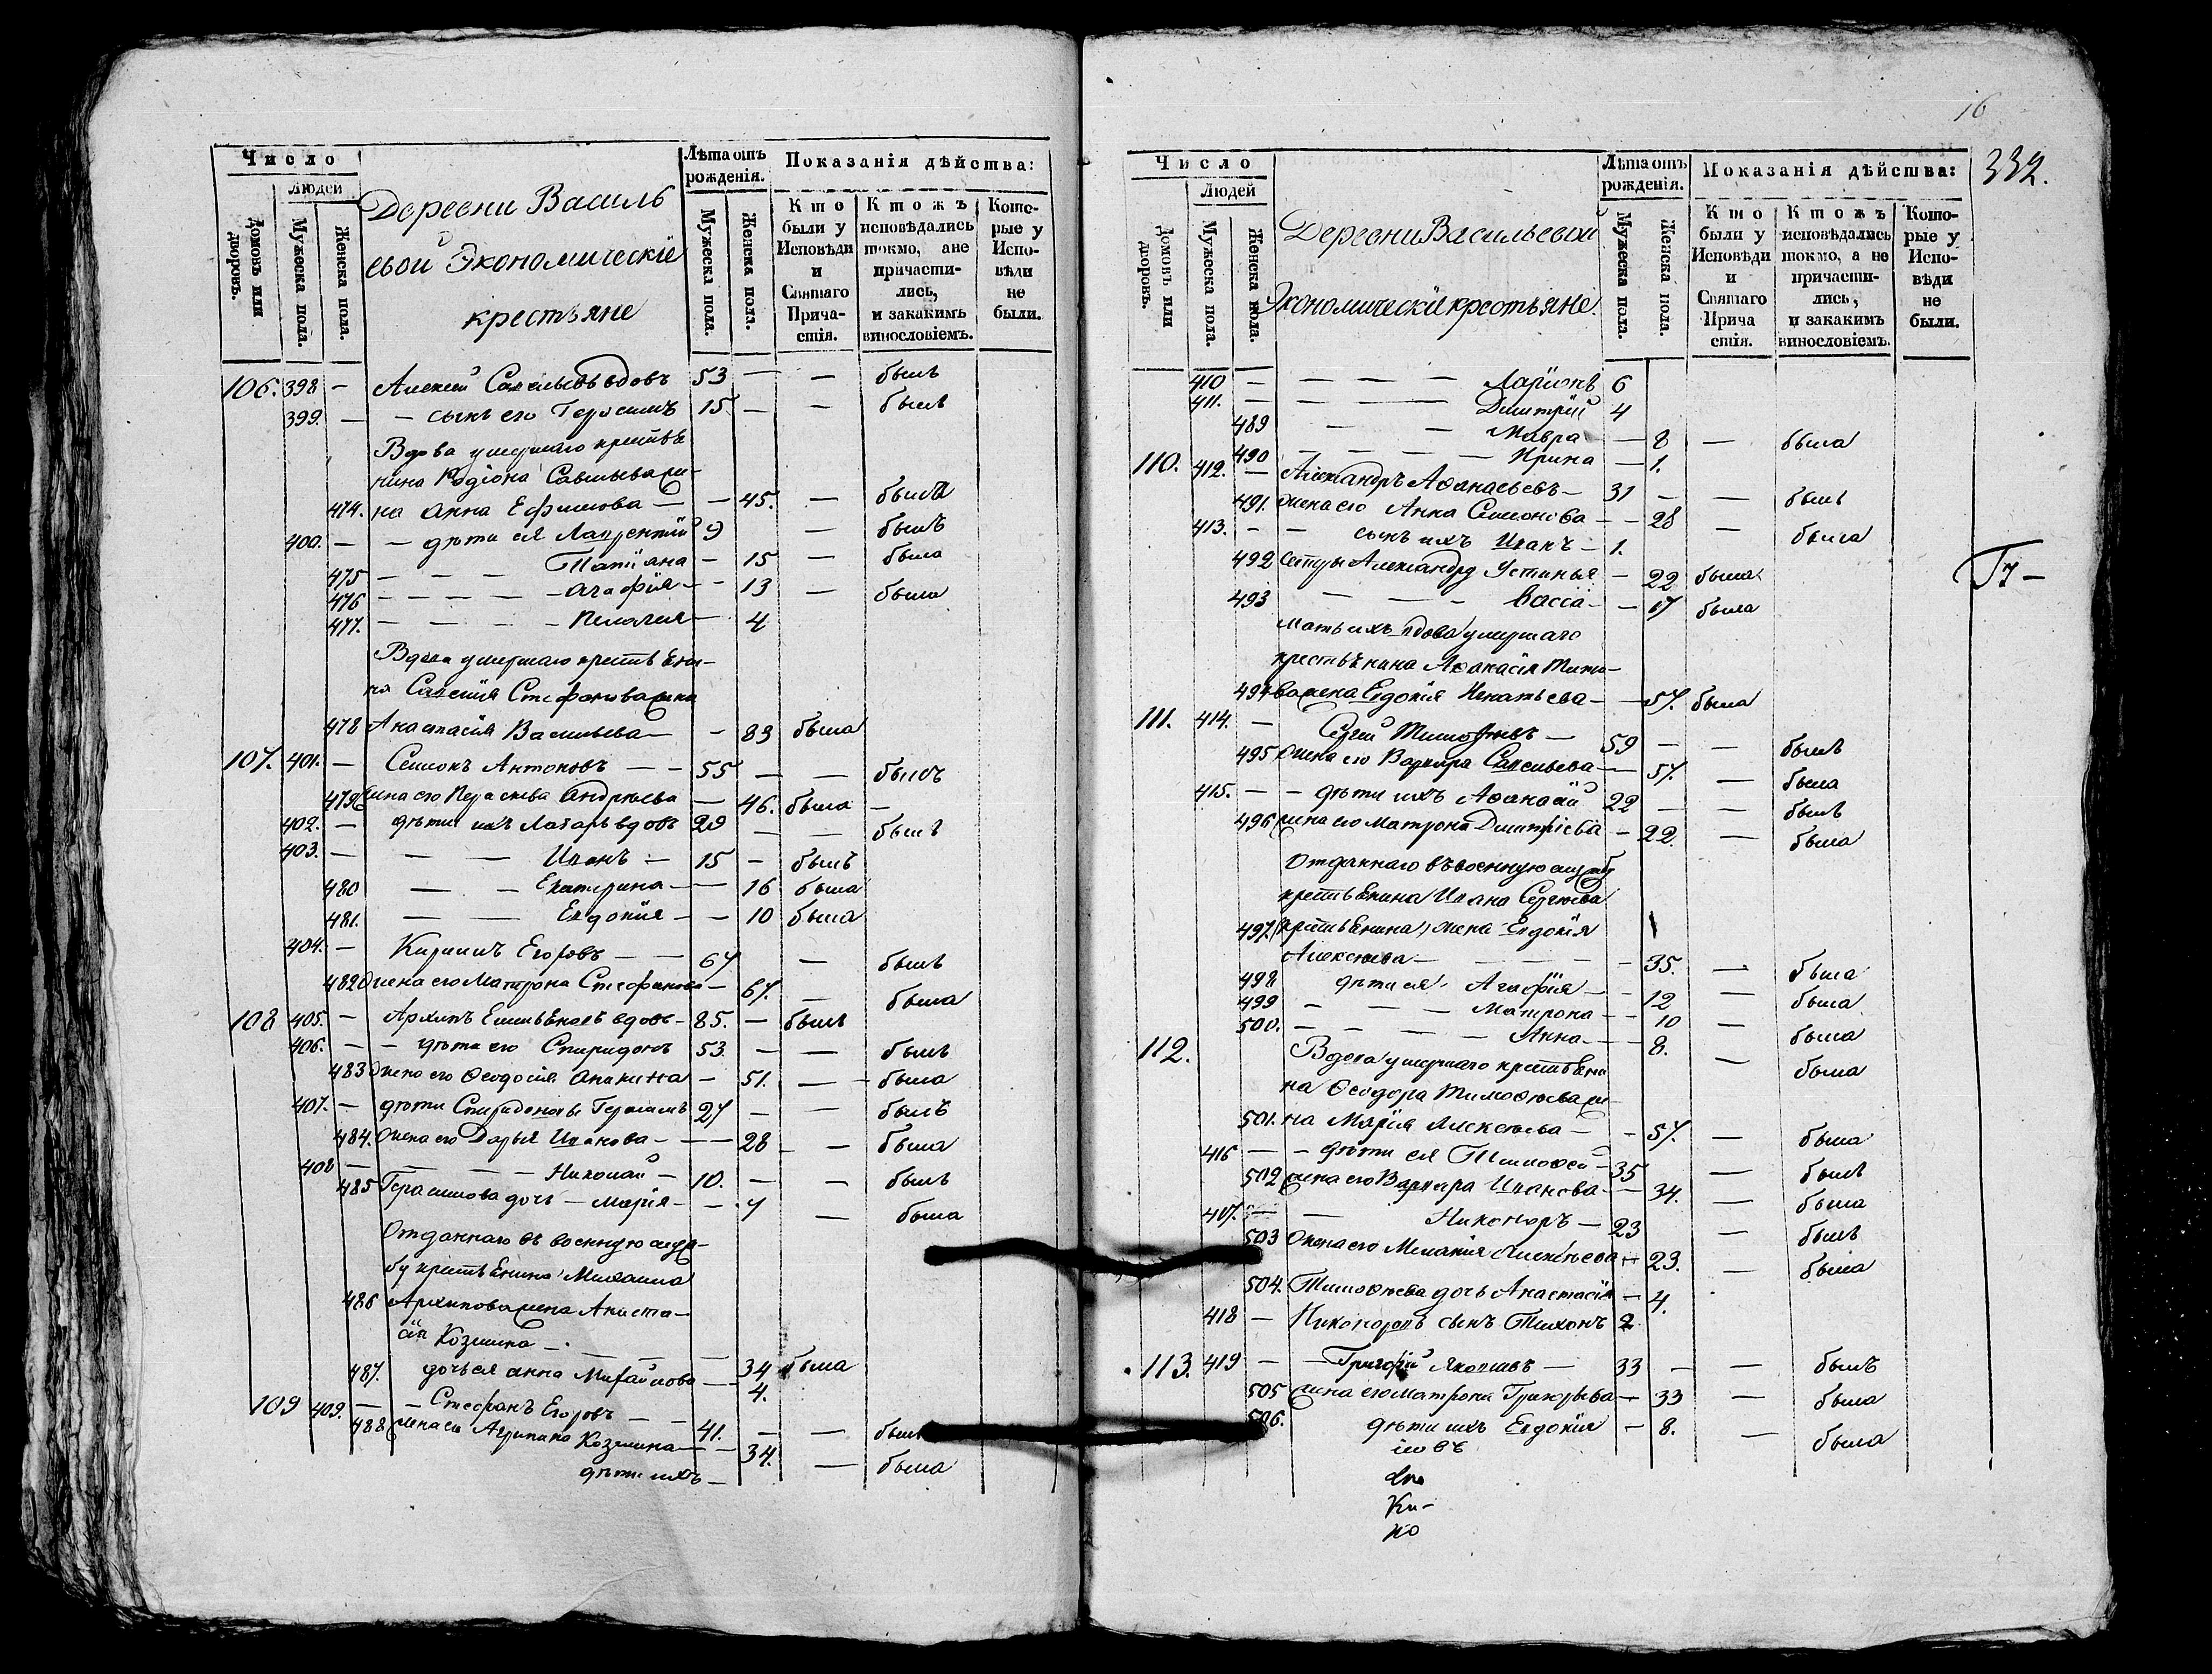 Число
Людей
Домовъ или дворовъ.
Мужеска пола.
Женска пола.
Деревни Василь
евой Экономическіе
крестьяне
Лѣта отъ рожденія.
Мужеска пола.
Женска пола.
Показанія дѣйства:
Кто были у Исповѣди и Святаго Причастія.
Ктожъ исповѣдались токмо, а не причастились, и закакимъ винословіемъ.
Которые у Исповѣди не были.
106. 398 — Алексей Савельевъ вдовъ 53 — — былъ
399. — — сынъ его Герасимъ 15. — — былъ
Вдова умершаго крестья
нина Родіона Савельева же-
474. на Анна Ефимова — — 45. — была
400. — — дѣти ея Лаврентій 9 — былъ
475 — — — Татіана — 15 — была
476 — — — — Агафія — — 13 — была
477. — — — — Пелагия — 4
Вдова умершаго крестьени-
на Савелия Стефанова жена
478 Анастасія Васильева — — 83 была
107. 401. — Семионъ Антоновъ — — 55 — — былъ
479 жена его Параскева Андреева — 46. была —
402. — дѣти ихъ Лазарь вдовъ 29 — — былъ
403. — — — Иванъ — 15 — былъ
480 — — Екатерина — — 16 была
481. — — Евдокия — — 10 была
404. — Кирилъ Егоровъ — — 67 — былъ
482 жена его Матрона Стефанова — 67. — была
108 405. — Архипъ Емельеновъ вдовъ — 85. — былъ
406. — — дѣти его Спиридонъ 53. — — былъ
483 жена его Ѳеодосия Ананина — 51. — — была
407. — дѣти Спиридоновы Герасимъ 27 — — былъ
484. жена его Дарья Иванова — — — 28 — — была
408 — — — — Николай — 10. — — былъ
485 Герасимова дочь — Марія — — 7 — была
Отданнаго въ военную служ-
бу крестьенина Михаила
486 Архипова жена Анаста-
сія Козмина — — — 34 была
487. дочь ея анна Михайлова — — 4.
109 409. — — Стефанъ Егоровъ — — 41. — — былъ
488 жена его Агрипина Козмина — — 34. — была
дѣти ихъ —
16
332.
Число
Людей
Домовъ или дворовъ.
Мужеска пола.
Женска пола.
Деревни Васильевой
Экономическіе крестьяне.
Лѣта отъ рожденія.
Мужеска пола.
Женска пола.
Показанія дѣйства:
Кто были у Исповѣди и Святаго Причастія.
Ктожъ исповѣдались токмо, а не причастились, и закакимъ винословіемъ.
Которые у Исповѣди не были.
410 — — — — — Ларіонъ 6
411. — — — — Дмитрій 4
489 — — Мавра — — 8 — была
490 — — — — Ирина — 1.
110. 412. — Александръ Аѳанасьевъ — 31 — — былъ
491. жена его Анна Семионова — — 28 — была
413. — — сынъ ихъ Иванъ — 1.
492 Сестры Александра Устинья — 22 была
493 — — — Васса — — 17 была
Мать ихъ вдова умершаго
крестьенина Аѳанасія Тимо-
494 ва жена Евдокія Игнатьева — — 57. была
111. 414. — Сергей Тимоѳеевъ — 59 — — былъ
495 жена его Варвара Савельева — — 57. — была
415. — — дѣти ихъ Аѳанасій 22 — — былъ
496 жена его Матрона Дмитріева — 22. — была
Отданнаго въ военную службу
крестьенина Ивана Сергеева
497. (крестьенина) жена Евдокія
Алексеева — — — — — 35. — была
498 дѣти ея Агафия — — 12 — была
499 — — — Матрона — — 10 — была
500. — — — — Анна — — 8. — была
112. Вдова умершаго крестьени
на Ѳеодора Тимоѳеева же-
501. на Марія Алексеева — — 57. — была
416 — — дѣти ея Тимоѳей — 35 — былъ
502 жена его Варвара Иванова — — 34. — была
417. — — Никоноръ — 23 — былъ
503 жена его Меланія Алексеева — 23. — была
504. Тимоѳеева дочь Анастасія — 4.
418 — Никоноровъ сынъ Тихонъ 2
113. 419 — — Григорій Яковлевъ — 33 — — былъ
505 жена его Матрона Григорьева — 33 — была
506. дѣти ихъ Евдокия — 8. — была